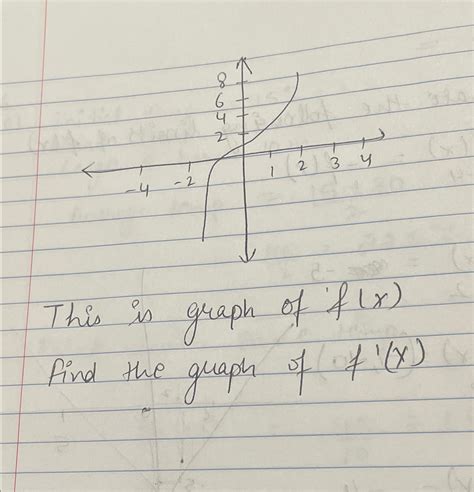 8
6
4
2
-4 -2 1 2 3 4
This is graph of f(x)
find the graph of f'(x)